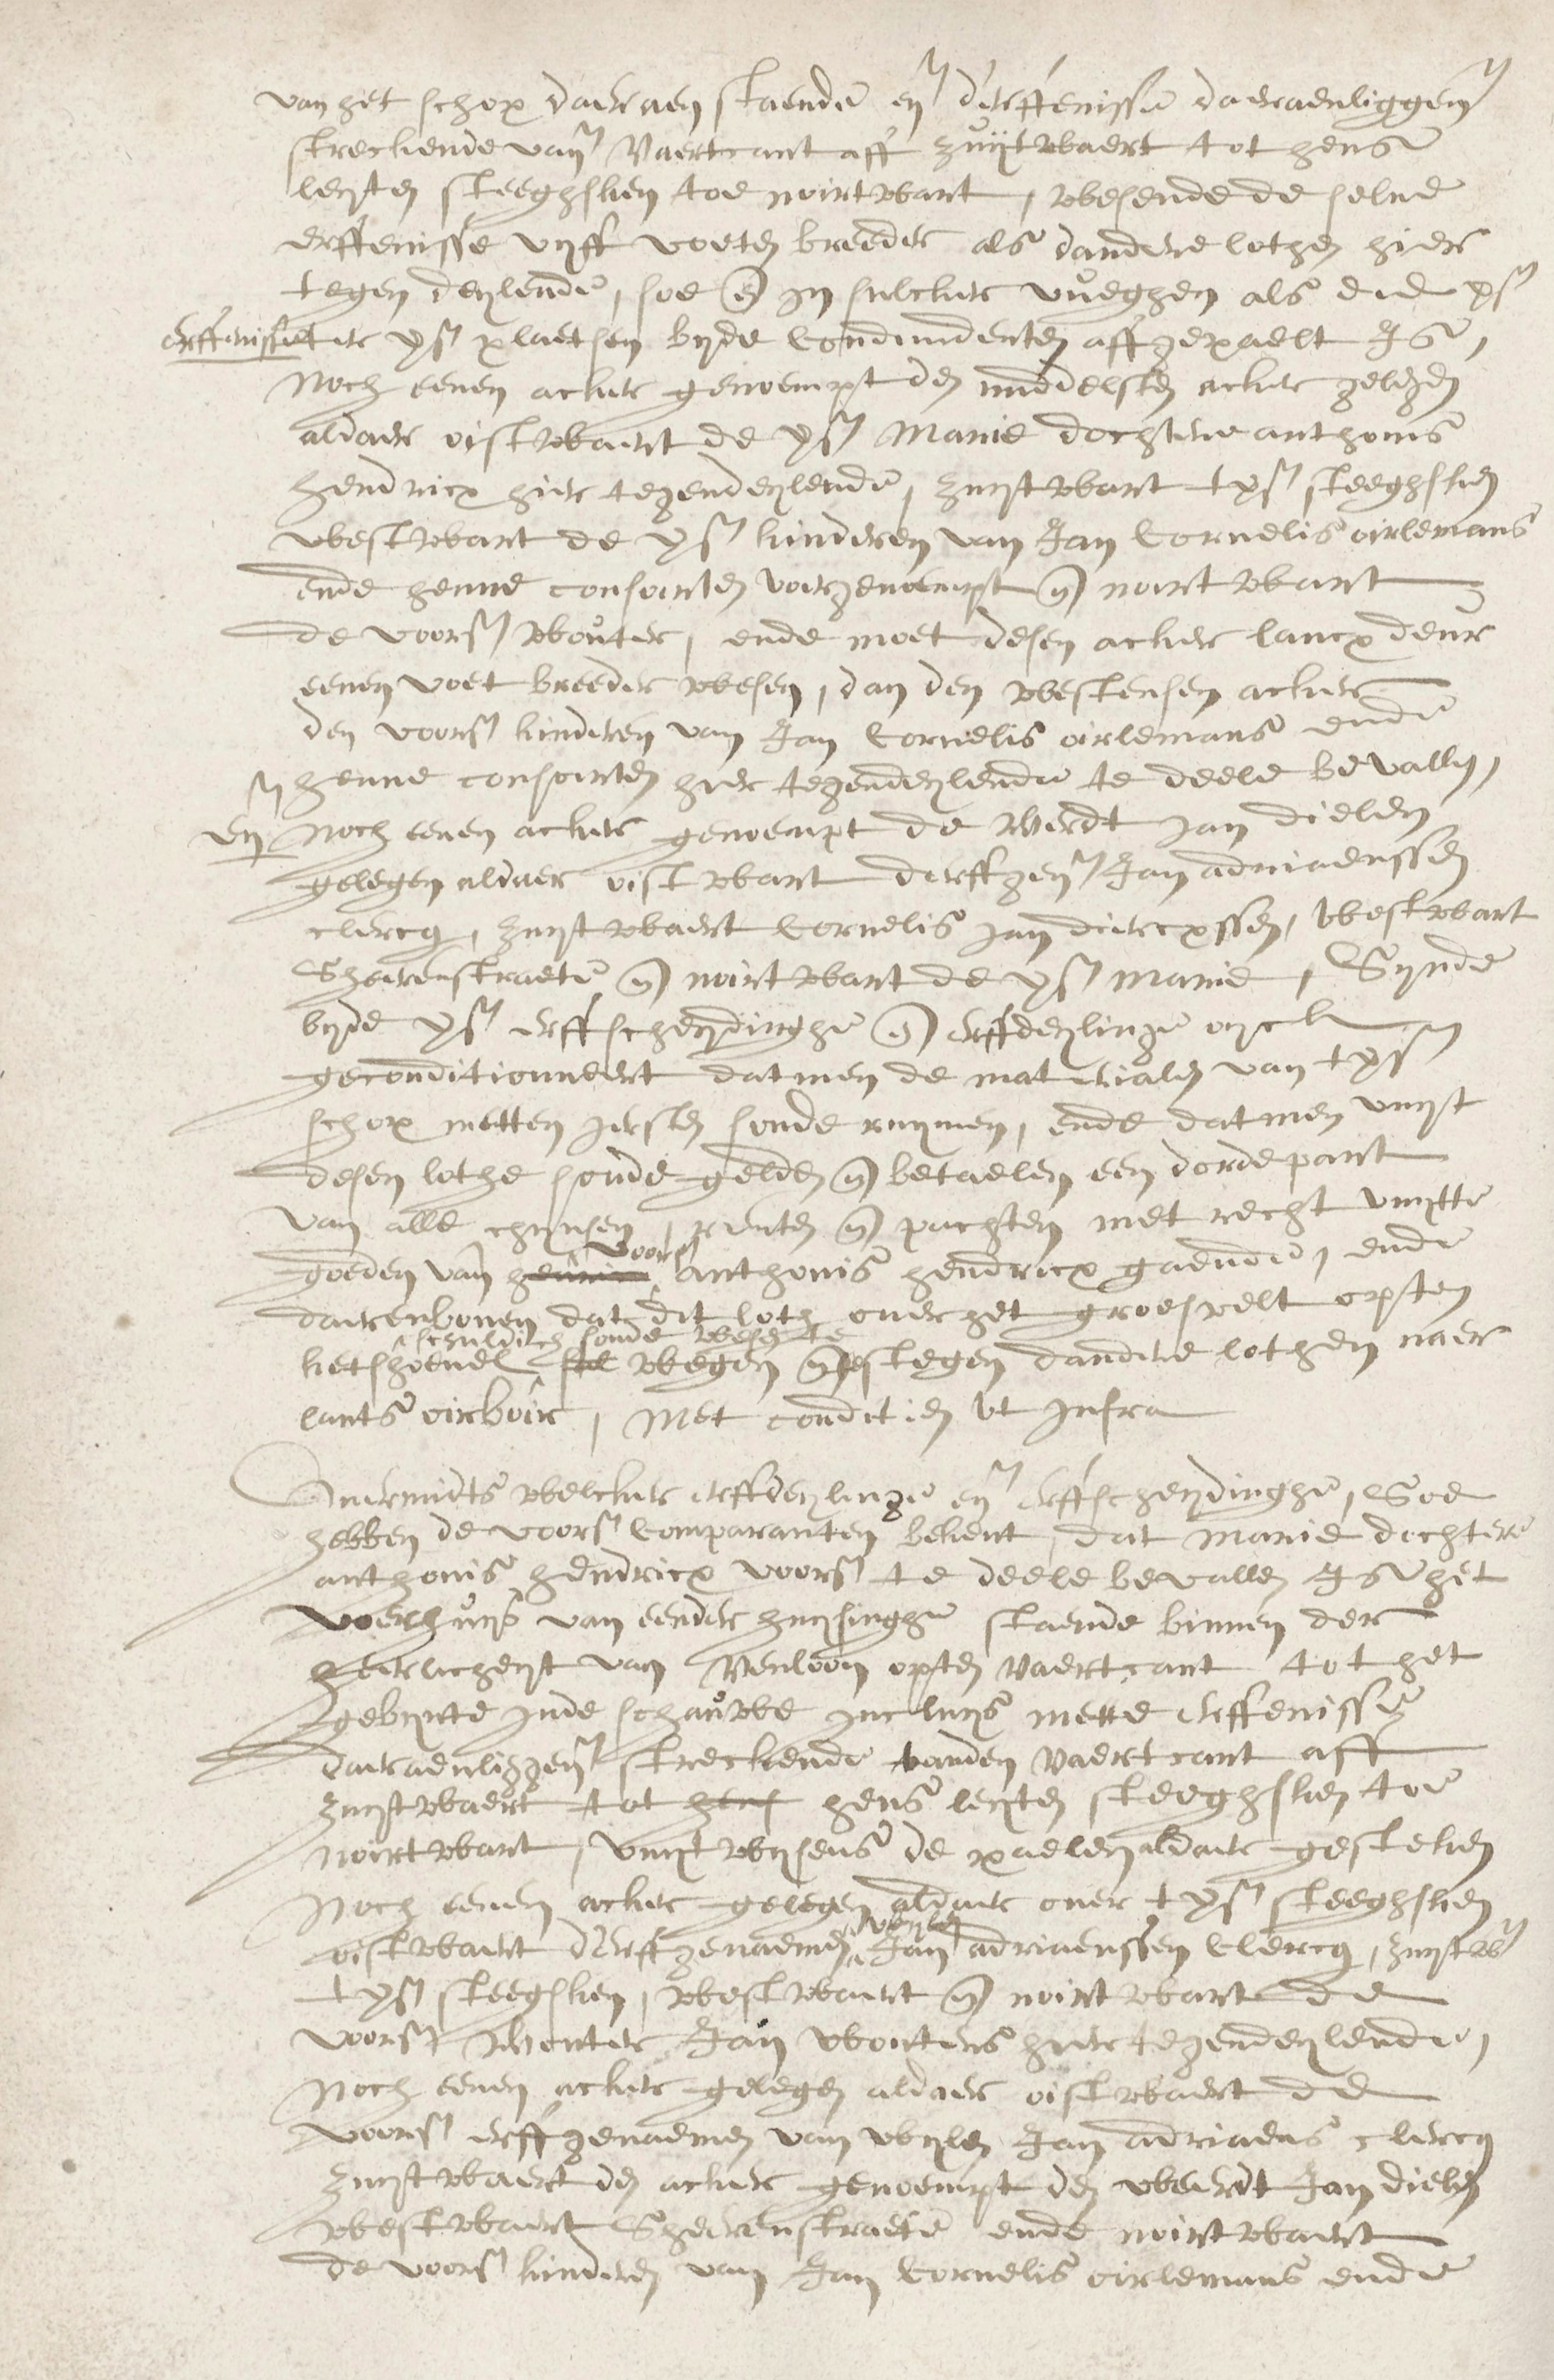 van het schop daer aen staende en d'erffenisse daeraenliggen
streckende van Vaertcant aff zuijtwaert tot hens
leijten steeghsken toe noirtwart, wesende de selve
erffenisse vijff voeten breeder als dandere lothen hier
tegen deylende, soe en in sulcker vueghen als
erffenisse ter ps plaetsen byde Condividenten affgepaelt Is,
Noch eenen acker genoempt den middelsten acker gelegen
aldaer oistwaert de ps Marie dochtere anthonis
hendricx hier tegendeylende, zuytwart tps steeghsken
westwart de ps kinderen van Jan Cornelis oirlemans
ende henne consorten voirgenoempt en noirtwart
de voors Wouter, ende moet desen acker lancx deur
eenen voet breeder wesen, dan den westensen acker
den voors kinderen van Jan Cornelis oirlemans ende
henne consorten hier tegendeylende te deele bevallen,
en Noch eenen acker genoempt de Werdt Jan dielen
gelegen aldaer oistwart derffgen Jan adriaenssen
clercq, zuytwaert Cornelis Jan dircxssen, westwart
Sheerenstraete en noirtwart de ps Marie, Synde
byde ps erffscheydinghe en erffdeylinge oyck
geconditionneert datmen de materialen van tps
schop metten iersten soude ruymen, ende datmen vuyt
desen lothe soude gelden en betaelen een dordepart
van alle chijnsen, renten en pachten met recht vuytte
goeden van voors anthonis hendricx gaende, ende
daerenboven dat dit loth over het groesvelt opten
ketshoevel schuldich soude wesen te wegen en stegen dandere lothen naer
lants oirboir, Met conditien ut Infra
Overmidts welcker erffdeylinge en erffscheydinghe, Soe
hebben de voors Comparanten bekent, dat Marie dochtere
anthonis hendricx voors te deele bevallen Is het
voerhuys van eender huysinghe staende binnen der
heerlicheyt van Venloon opten Vaertcant tot het
gebynte inde schauwe incluys mette erffenisse
daeraenliggen streckende vanden Vaertcant aff
zuytwaert tot hens hens leijten steeghsken toe
noirtwart, vuytwysens de paelen aldaer gesteken
Noch eenen acker gelegen aldaer over tps steeghsken
oistwaert d'erffgenaemen wylen Jan adriaenssen Clercq, zuytw
tps steegsken, westwaert en noirtwart de
voors Wouter Jan Wouters hier tegendeylende,
Noch eenen acker gelegen aldaer oistwaert de
voors erffgenaemen van wylen Jan adriaens clercq
zuytwaert den acker genoempt den weerdt Jan dielen
westwaert Sheerenstraete ende noirtwaert
de voors kinderen van Jan Cornelis oirlemans ende